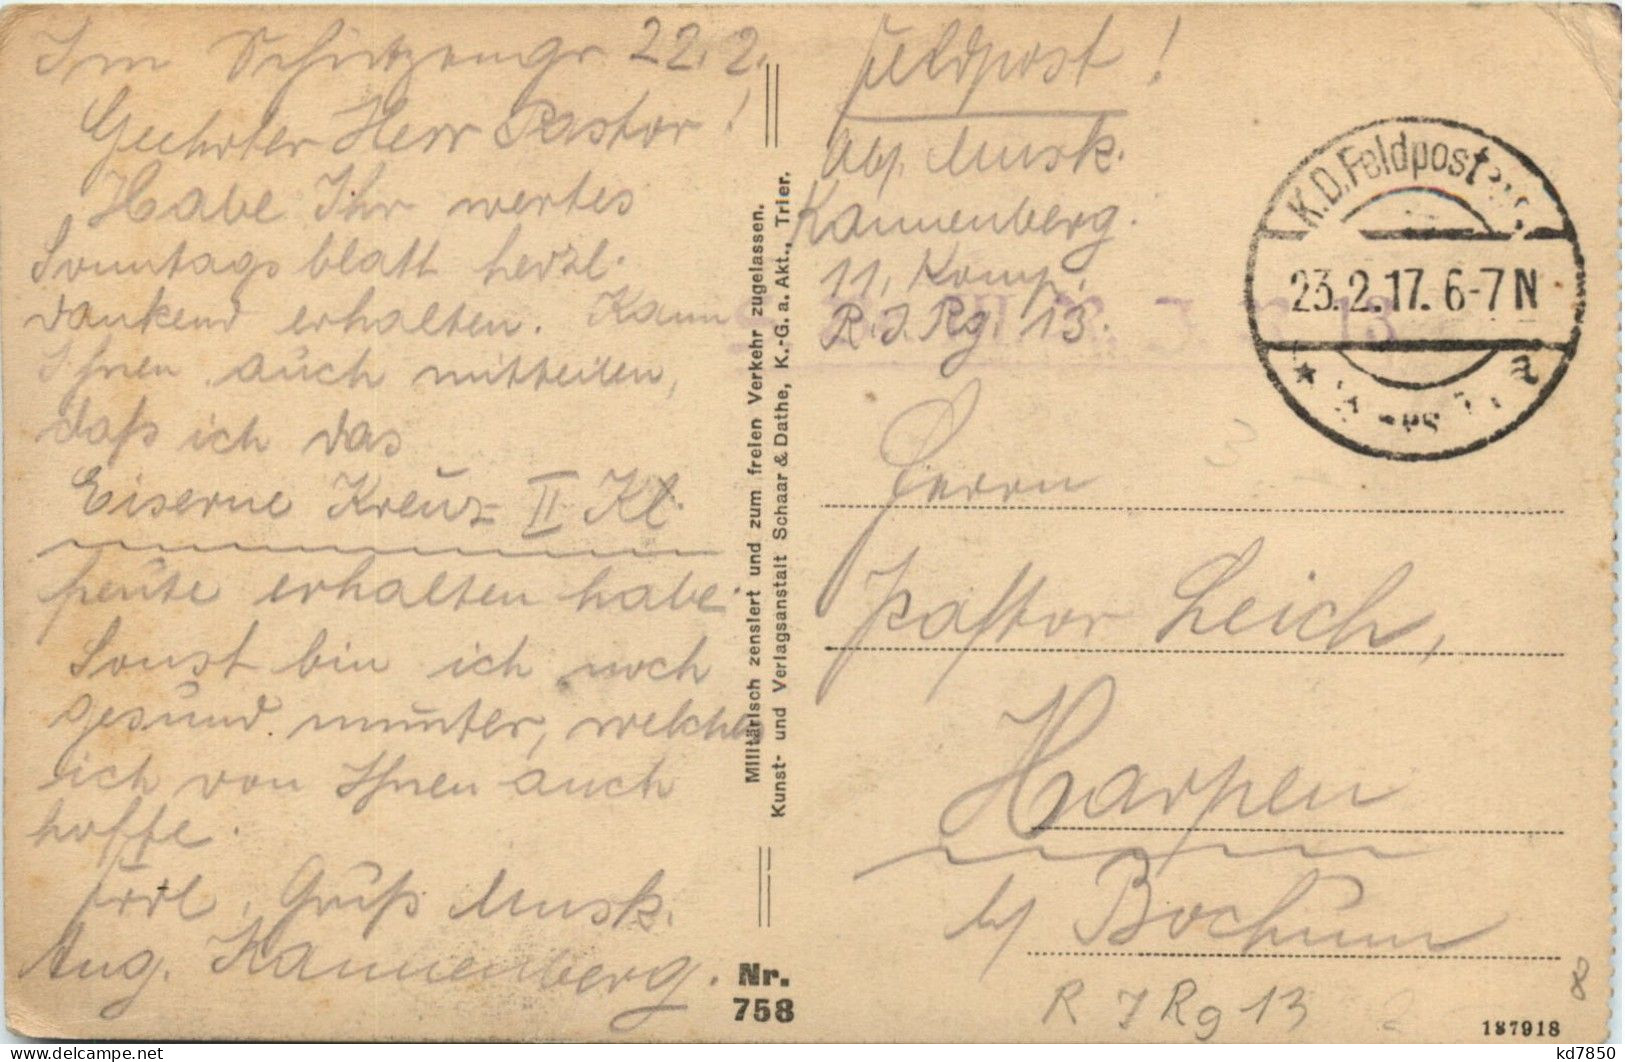 Im Schützengr. 22. 2.
Geehrter Herr Pastor!
Habe Ihr wertes
Sonntagsblatt herzl.
dankend erhalten. Kann
Ihnen auch mitteilen,
daß ich das
Eiserne Kreuz II Kl.
heute erhalten habe.
Sonst bin ich noch
gesund munter, welches
ich von Ihnen auch
hoffe.
Frdl. Gruß Musk.
Aug. Kannenberg.
Militärisch zensiert und zum freien Verkehr zugelassen.
Kunst- und Verlagsanstalt Schaar & Dathe, K.-G. a. Akt., Trier.
Nr.
758
Feldpost!
Abs. Musk.
Kannenberg.
11. Komp.
R. I. Rg. 13.
K.D.Feldpost
23.2.17. 6-7N
a
Herrn
Pastor Leich,
Harpen
b/ Bochum
R I Rg 13
8
187918
kd7850